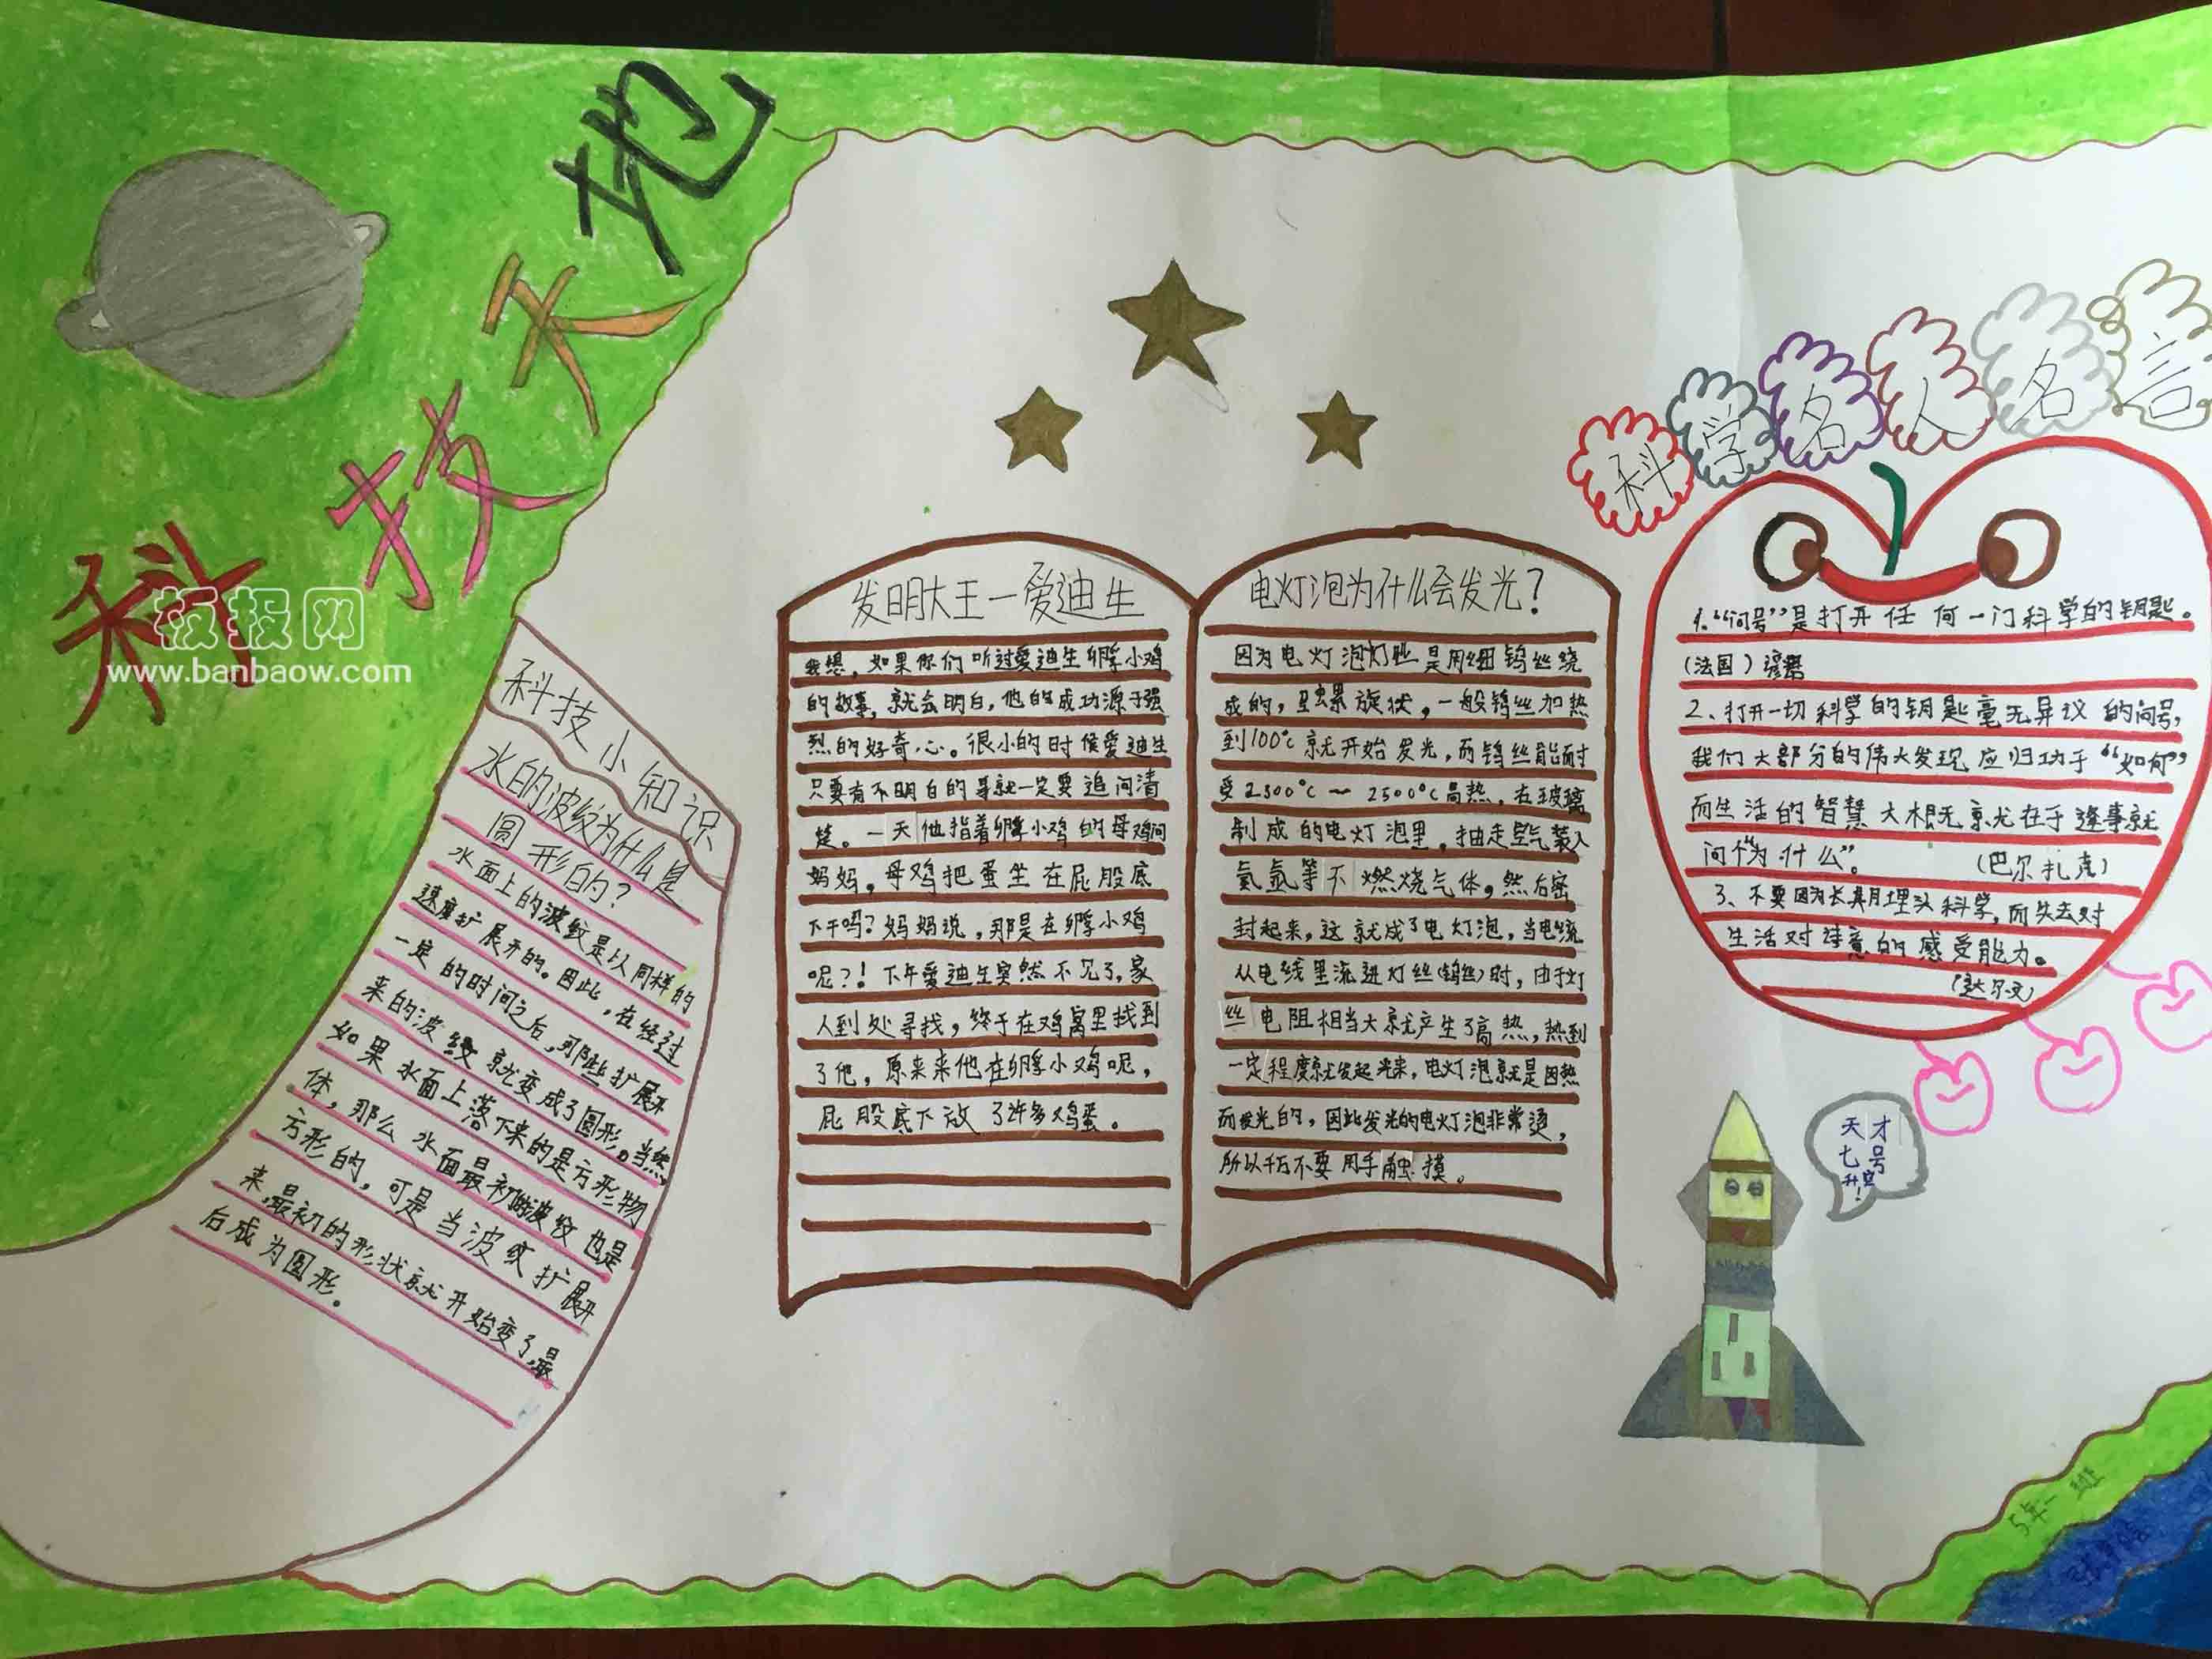 科技天地
板报网
www.banbaow.com
科技小知识
水的波纹为什么是
圆形的?
水面上的波纹是以同样的
速度扩展开的。因此,在经过
一定的时间之后,那些扩展开
来的波纹就变成了圆形。当然
如果水面上落下来的是方形物
体,那么水面最初的波纹也是
方形的,可是当波纹扩展开
来,最初的形状就开始变了,最
后成为圆形。
发明大王—爱迪生
我想,如果你们听过爱迪生孵小鸡
的故事,就会明白,他的成功源于强
烈的好奇心。很小的时候爱迪生
只要有不明白的事就一定要追问清
楚。一天他指着孵小鸡的母鸡问
妈妈,母鸡把蛋坐在屁股底
下干吗?妈妈说,那是在孵小鸡
呢?!下午爱迪生突然不见了,家
人到处寻找,终于在鸡窝里找到
了他,原来来他在孵小鸡呢,
屁股底下放了许多鸡蛋。
电灯泡为什么会发光?
因为电灯泡灯丝是用细钨丝绕
成的,呈螺旋状,一般钨丝加热
到100℃就开始发光,而钨丝能耐
受2300℃~2500℃高热,在玻璃
制成的电灯泡里,抽走空气装入
氦氩等不燃烧气体,然后密
封起来,这就成了电灯泡,当电流
从电线里流进灯丝(钨丝)时,由于灯
丝电阻相当大就产生了高热,热到
一定程度就发起光来,电灯泡就是因热
而发光的,因此发光的电灯泡非常烫,
所以千万不要用手触摸。
科学名人名言
1.“问号”是打开任何一门科学的钥匙。
(法国)谚语
2、打开一切科学的钥匙毫无异议的问号,
我们大部分的伟大发现应归功于“如何”
而生活的智慧大概就在于逢事就
问个“为什么”。(巴尔扎克)
3、不要因为长期埋头科学,而失去对
生活对诗意的感受能力。
(达尔文)
天才
七号
升空!
5年一班